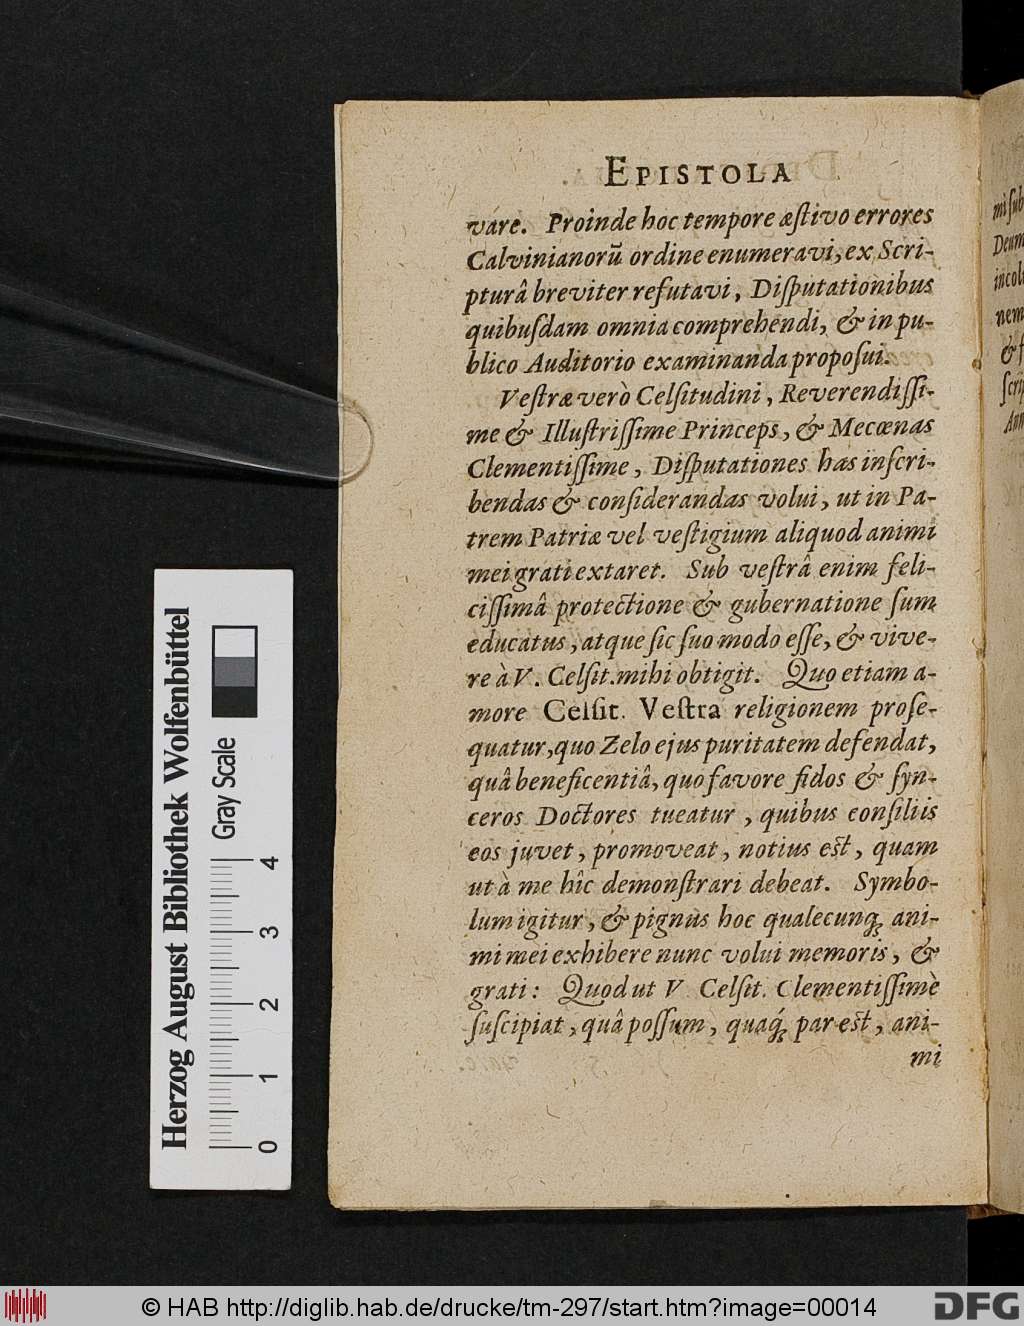 EPISTOLA
vare. Proinde hoc tempore æſtivo errores
Calvinianorũ ordine enumeravi, ex Scri-
pturâ breviter refutavi, Diſputationibus
quibuſdam omnia comprehendi, & in pu-
blico Auditorio examinanda propoſui.
Veſtræ verò Celſitudini, Reverendiſſi-
me & Illuſtriſſime Princeps, & Mecœnas
Clementiſſime, Diſputationes has inſcri-
bendas & conſiderandas volui, ut in Pa-
trem Patriæ vel veſtigium aliquod animi
mei grati extaret. Sub veſtrâ enim feli-
ciſſimâ protectione & gubernatione ſum
educatus, atque ſic ſuo modo eſſe, & vive-
re à V. Celſit. mihi obtigit. Quo etiam a-
more Celſit. Veſtra religionem proſe-
quatur, quo Zelo ejus puritatem defendat,
quâ beneficentiâ, quo favore fidos & ſyn-
ceros Doctores tueatur, quibus conſiliis
eos juvet, promoveat, notius eſt, quam
ut à me hîc demonſtrari debeat. Symbo-
lum igitur, & pignus hoc qualecunq; ani-
mi mei exhibere nunc volui memoris, &
grati: Quod ut V Celſit. Clementiſſimè
ſuſcipiat, quâ poſſum, quaq́; par eſt, ani-
mi
mi ſub
Deum
incol
nem
& f
ſcri
Herzog August Bibliothek Wolfenbüttel
Gray Scale
0 1 2 3 4
© HAB http://diglib.hab.de/drucke/tm-297/start.htm?image=00014
DFG